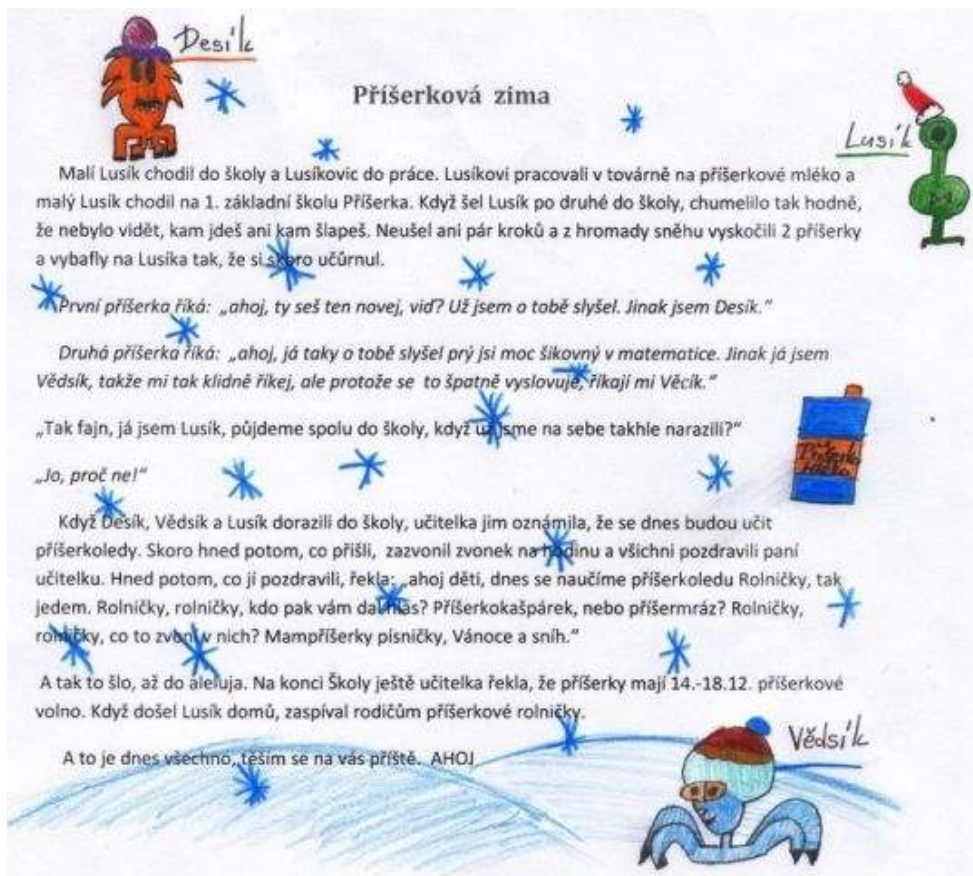 Desík
Příšerková zima
Lusík
Malí Lusík chodil do školy a Lusíkovic do práce. Lusíkovi pracovali v továrně na příšerkové mléko a
malý Lusík chodil na 1. základní školu Příšerka. Když šel Lusík po druhé do školy, chumelilo tak hodně,
že nebylo vidět, kam jdeš ani kam šlapeš. Neušel ani pár kroků a z hromady sněhu vyskočili 2 příšerky
a vybafly na Lusíka tak, že si skoro učůrnul.
První příšerka říká: „ahoj, ty seš ten novej, viď? Už jsem o tobě slyšel. Jinak jsem Desík.“
Druhá příšerka říká: „ahoj, já taky o tobě slyšel prý jsi moc šikovný v matematice. Jinak já jsem
Vědsík, takže mi tak klidně říkej, ale protože se to špatně vyslovuje, říkají mi Věcík.“
„Tak fajn, já jsem Lusík, půjdeme spolu do školy, když už jsme na sebe takhle narazili?“
„Jo, proč ne!“
Když Desík, Vědsík a Lusík dorazili do školy, učitelka jim oznámila, že se dnes budou učit
příšerkoledy. Skoro hned potom, co přišli, zazvonil zvonek na hodinu a všichni pozdravili paní
učitelku. Hned potom, co ji pozdravili, řekla: „ahoj děti, dnes se naučíme příšerkoledu Rolničky, tak
jedem. Rolničky, rolničky, kdo pak vám dal hlas? Příšerkokašpárek, nebo příšermráz? Rolničky,
rolničky, co to zvoní v nich? Mampříšerky písničky, Vánoce a sníh.“
A tak to šlo, až do aleluja. Na konci Školy ještě učitelka řekla, že příšerky mají 14.-18.12. příšerkové
volno. Když došel Lusík domů, zaspíval rodičům příšerkové rolničky.
A to je dnes všechno, těším se na vás příště. AHOJ
Vědsík